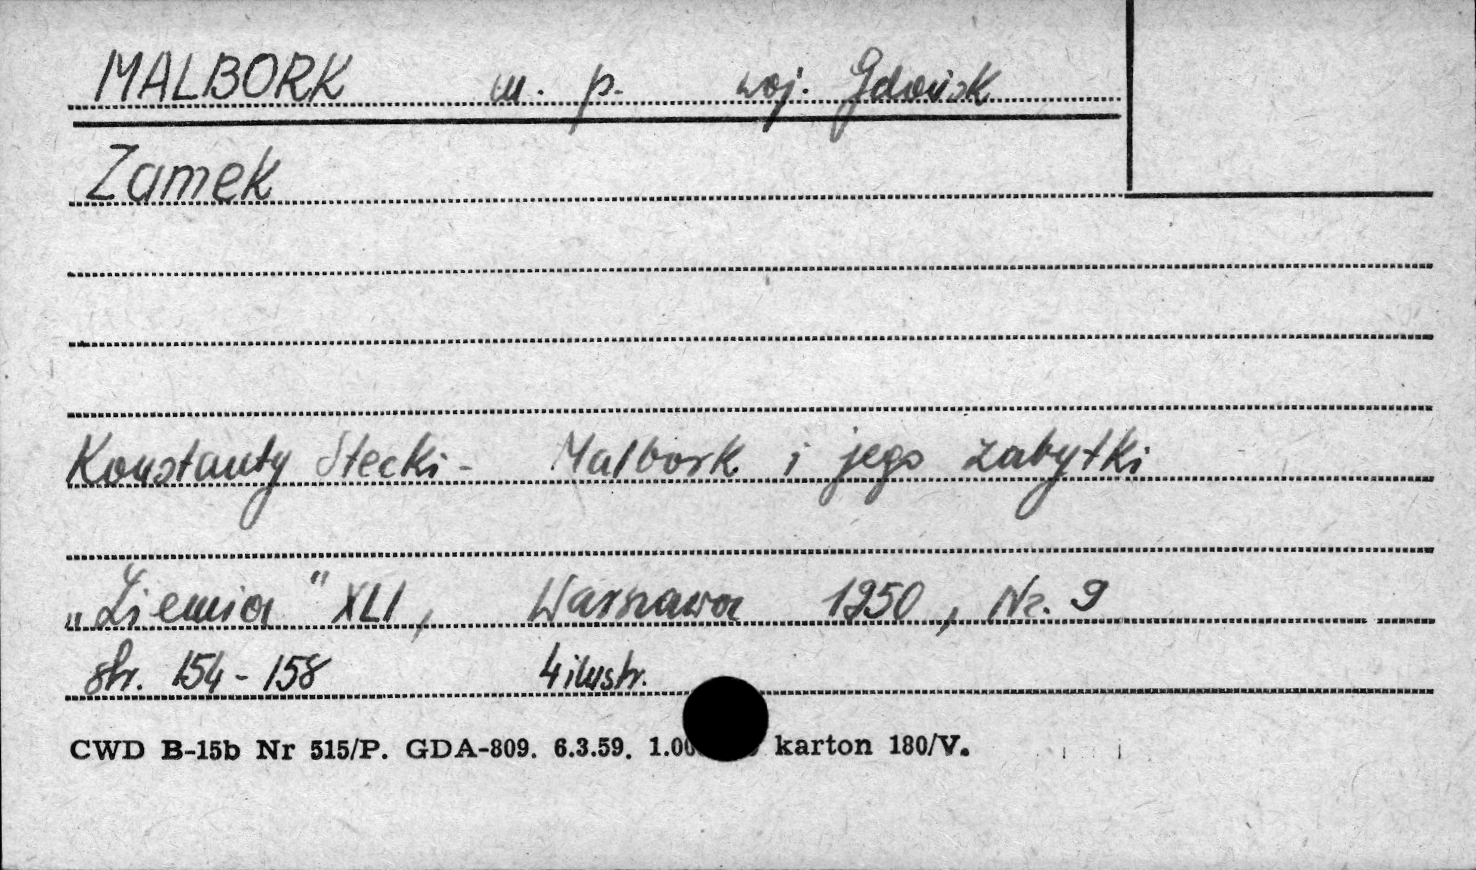 MALBORK m. p. woj. Gdańsk
Zamek
Konstanty Stecki - Malbork i jego zabytki
„Ziemia" XLI, Warszawa 1950, Nr. 9
str. 154 - 158 4 ilustr.
CWD B-15b Nr 515/P. GDA-809. 6.3.59. 1.00 karton 180/V.